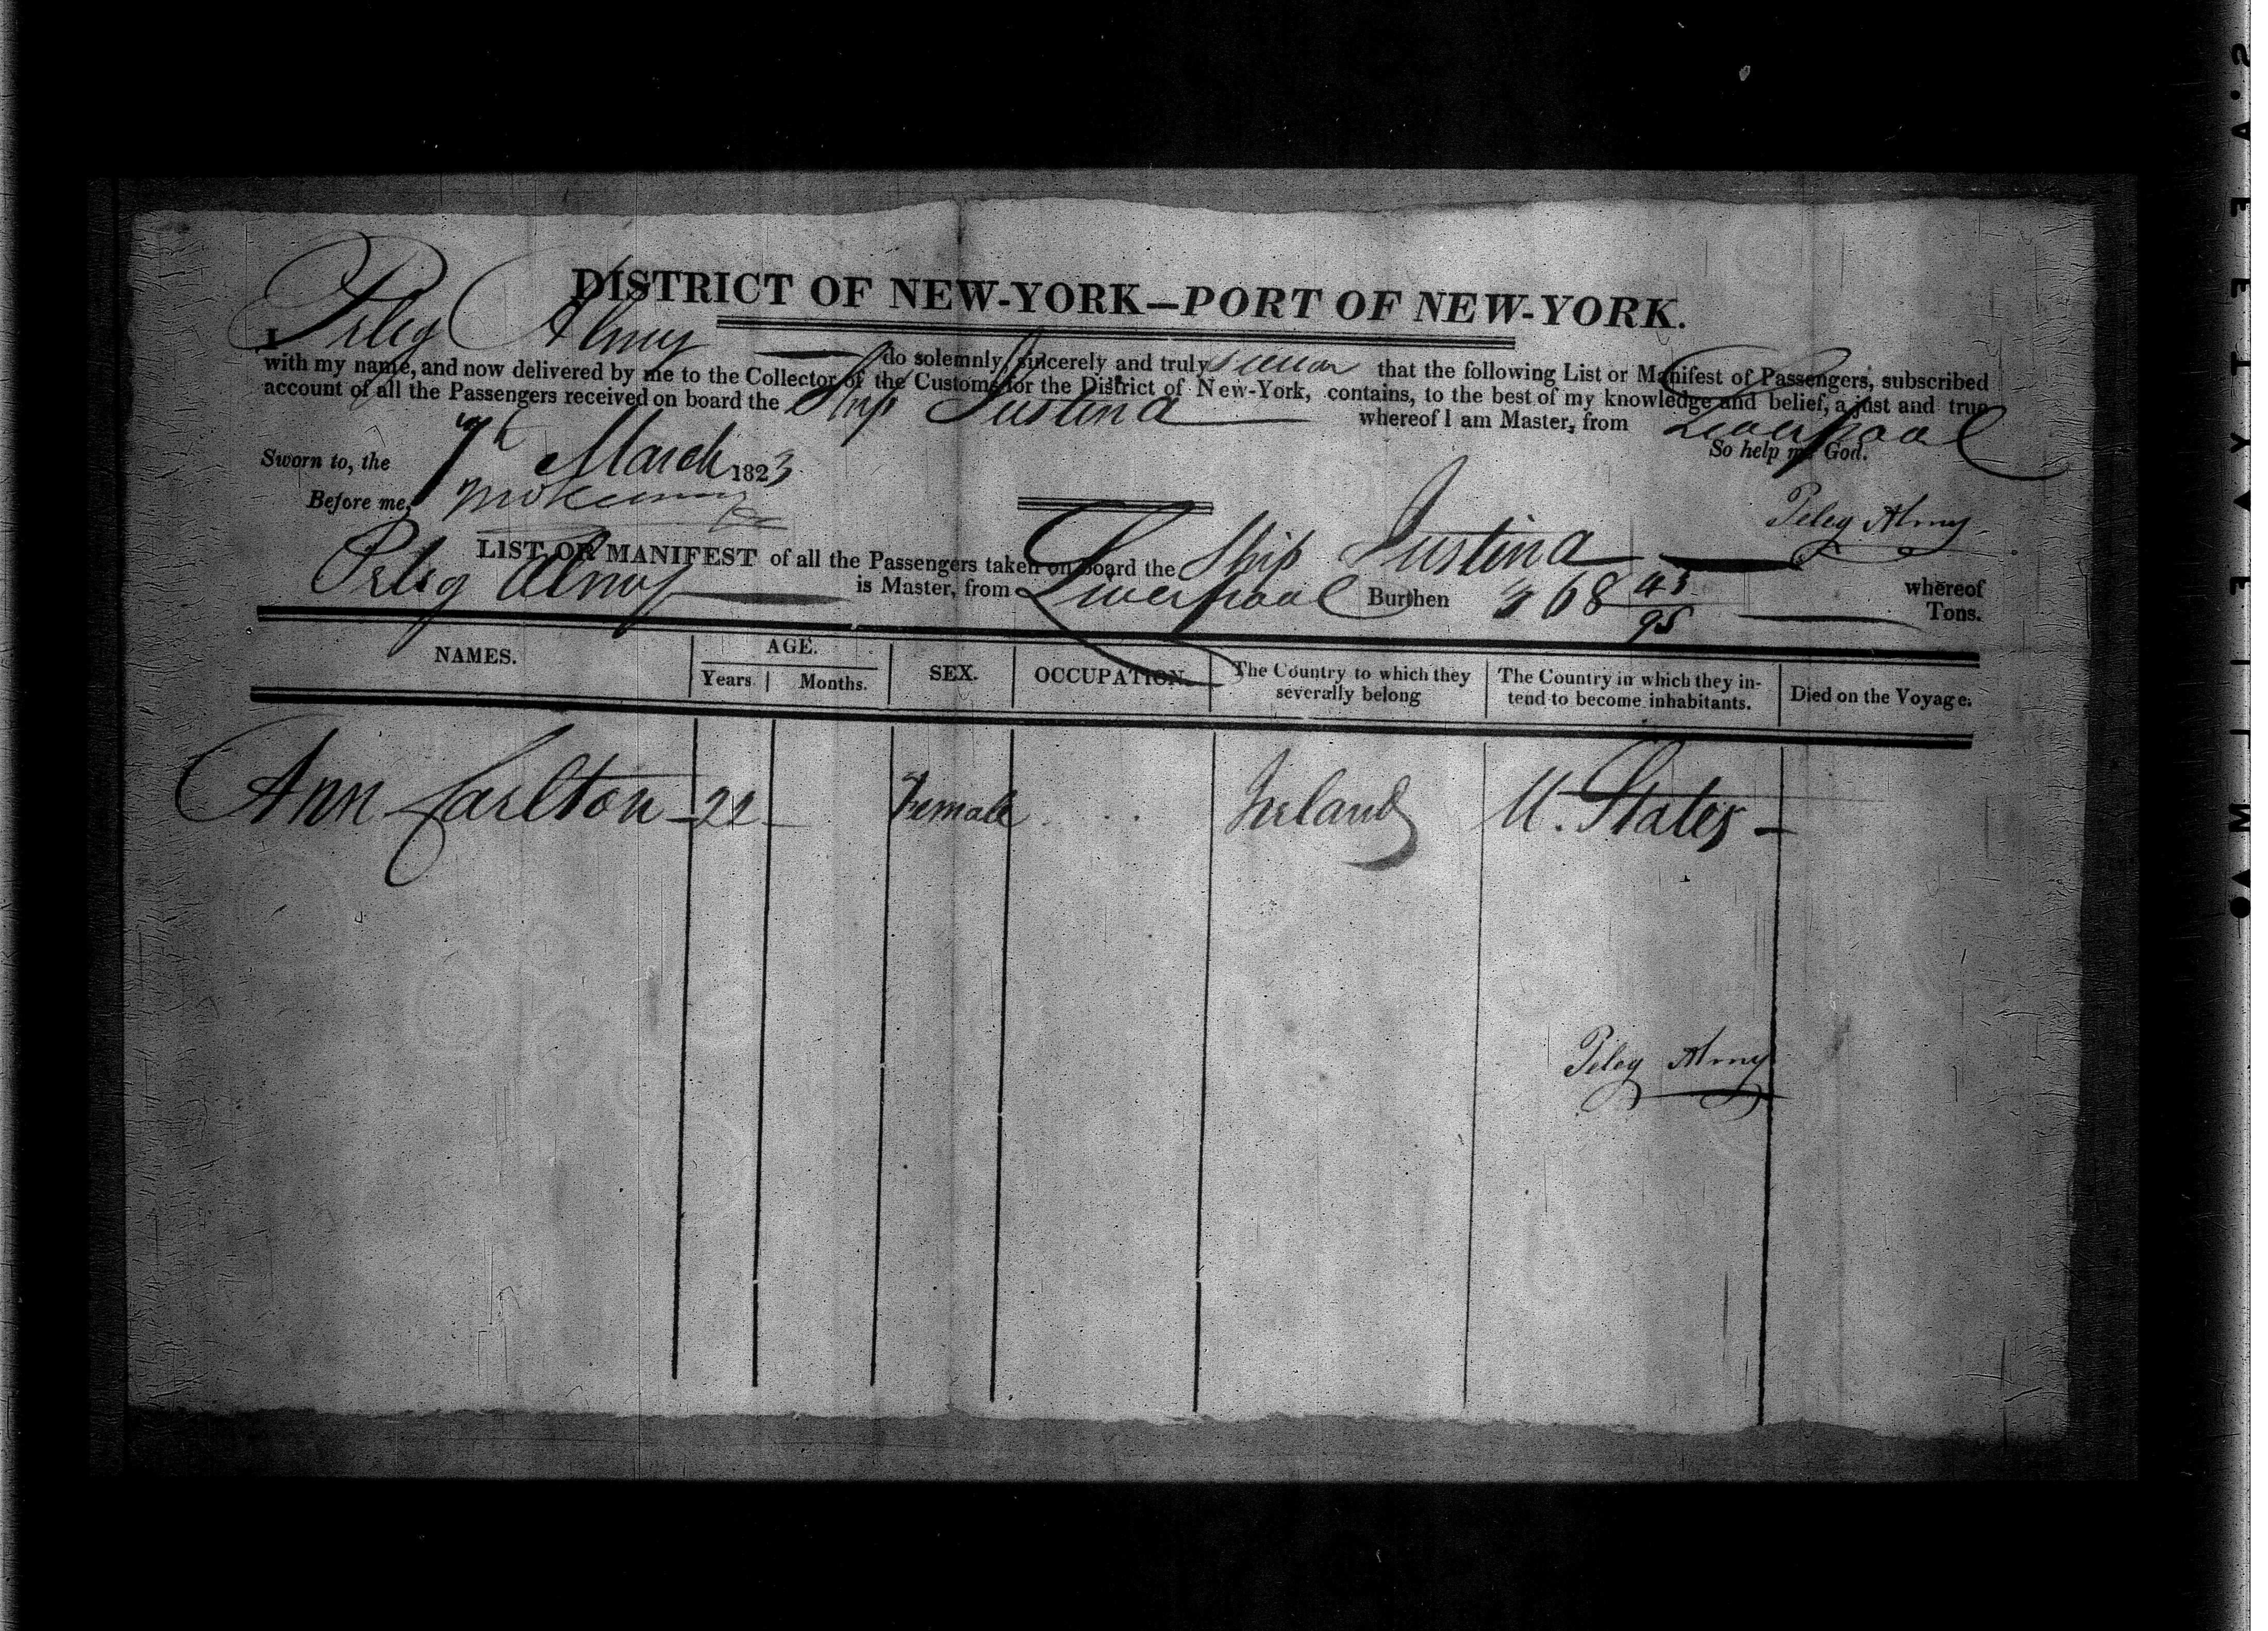 DISTRICT OF NEW-YORK—PORT OF NEW-YORK.
I Peleg Almy do solemnly, sincerely and truly swear that the following List or Manifest of Passengers, subscribed
with my name, and now delivered by me to the Collector of the Customs for the District of New-York, contains, to the best of my knowledge and belief, a just and true
account of all the Passengers received on board the Ship Justina whereof I am Master, from Liverpool
So help me God.
Sworn to, the 7th March 1823
Before me,
Peleg Almy
LIST OR MANIFEST of all the Passengers taken on board the Ship Justina whereof
Peleg Almy is Master, from Liverpool Burthen 368 43/95 Tons.
NAMES. AGE. SEX. OCCUPATION. The Country to which they severally belong The Country in which they in-tend to become inhabitants. Died on the Voyage.
Years Months.
Ann Carlton 22 Female Ireland U. States
Peleg Almy